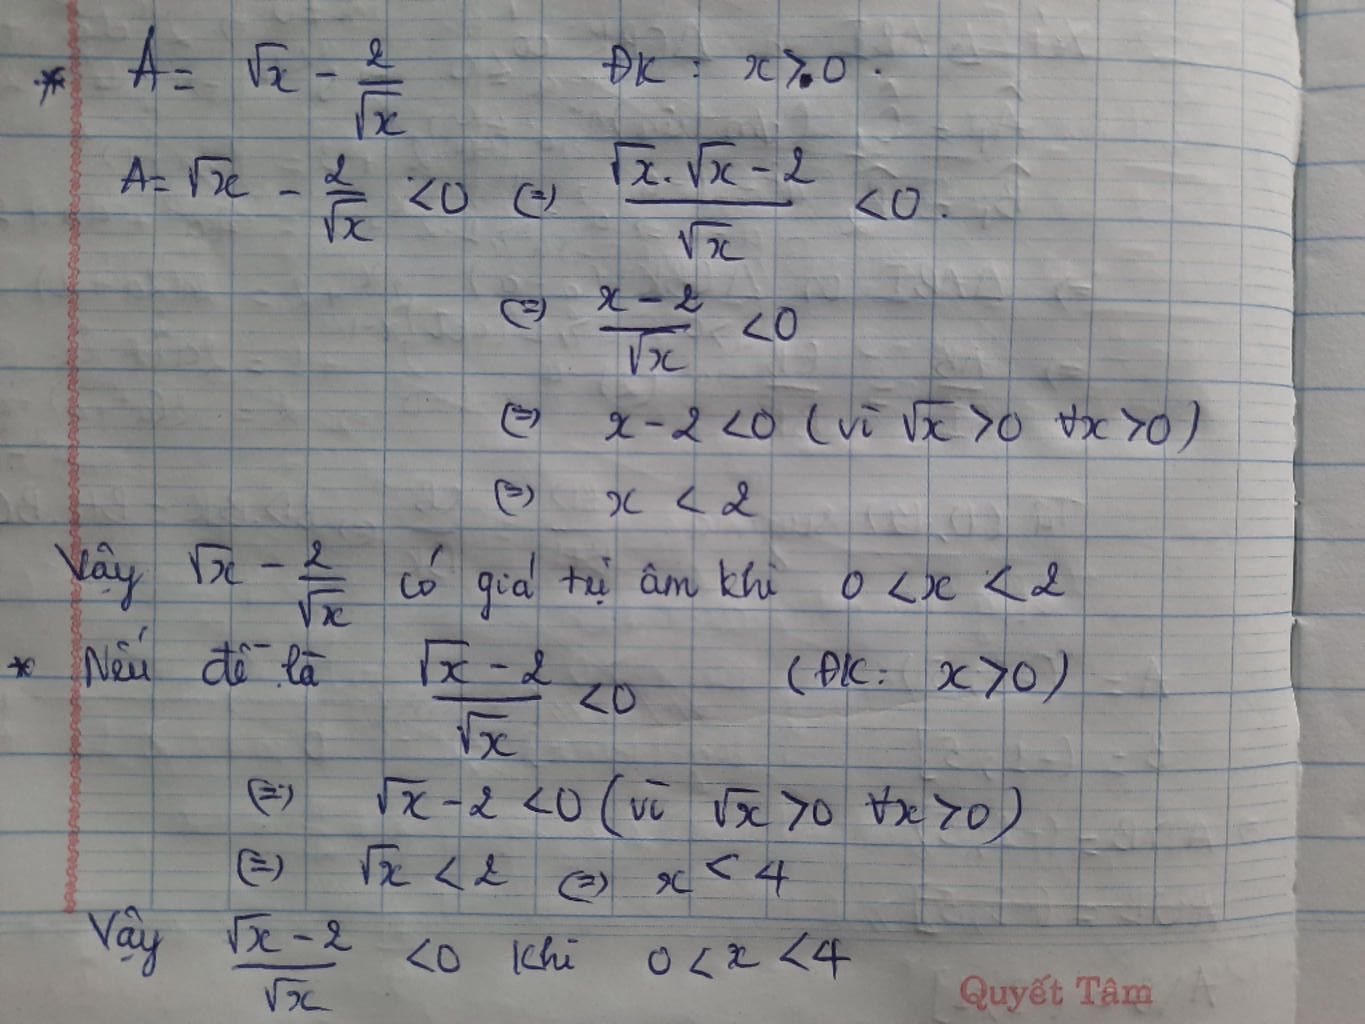 * A = √x - 2/√x ĐK : x > 0.
A = √x - 2/√x < 0 (=) (√x.√x - 2)/√x < 0.
(=) (x - 2)/√x < 0
(=) x - 2 < 0 (vì √x > 0 ∀x > 0)
(=) x < 2
Vậy √x - 2/√x có giá trị âm khi 0 < x < 2
* Nếu đề là (√x - 2)/√x < 0 (ĐK: x > 0)
(=) √x - 2 < 0 (vì √x > 0 ∀x > 0)
(=) √x < 2 (=) x < 4
Vậy (√x - 2)/√x < 0 khi 0 < x < 4
Quyết Tâm A